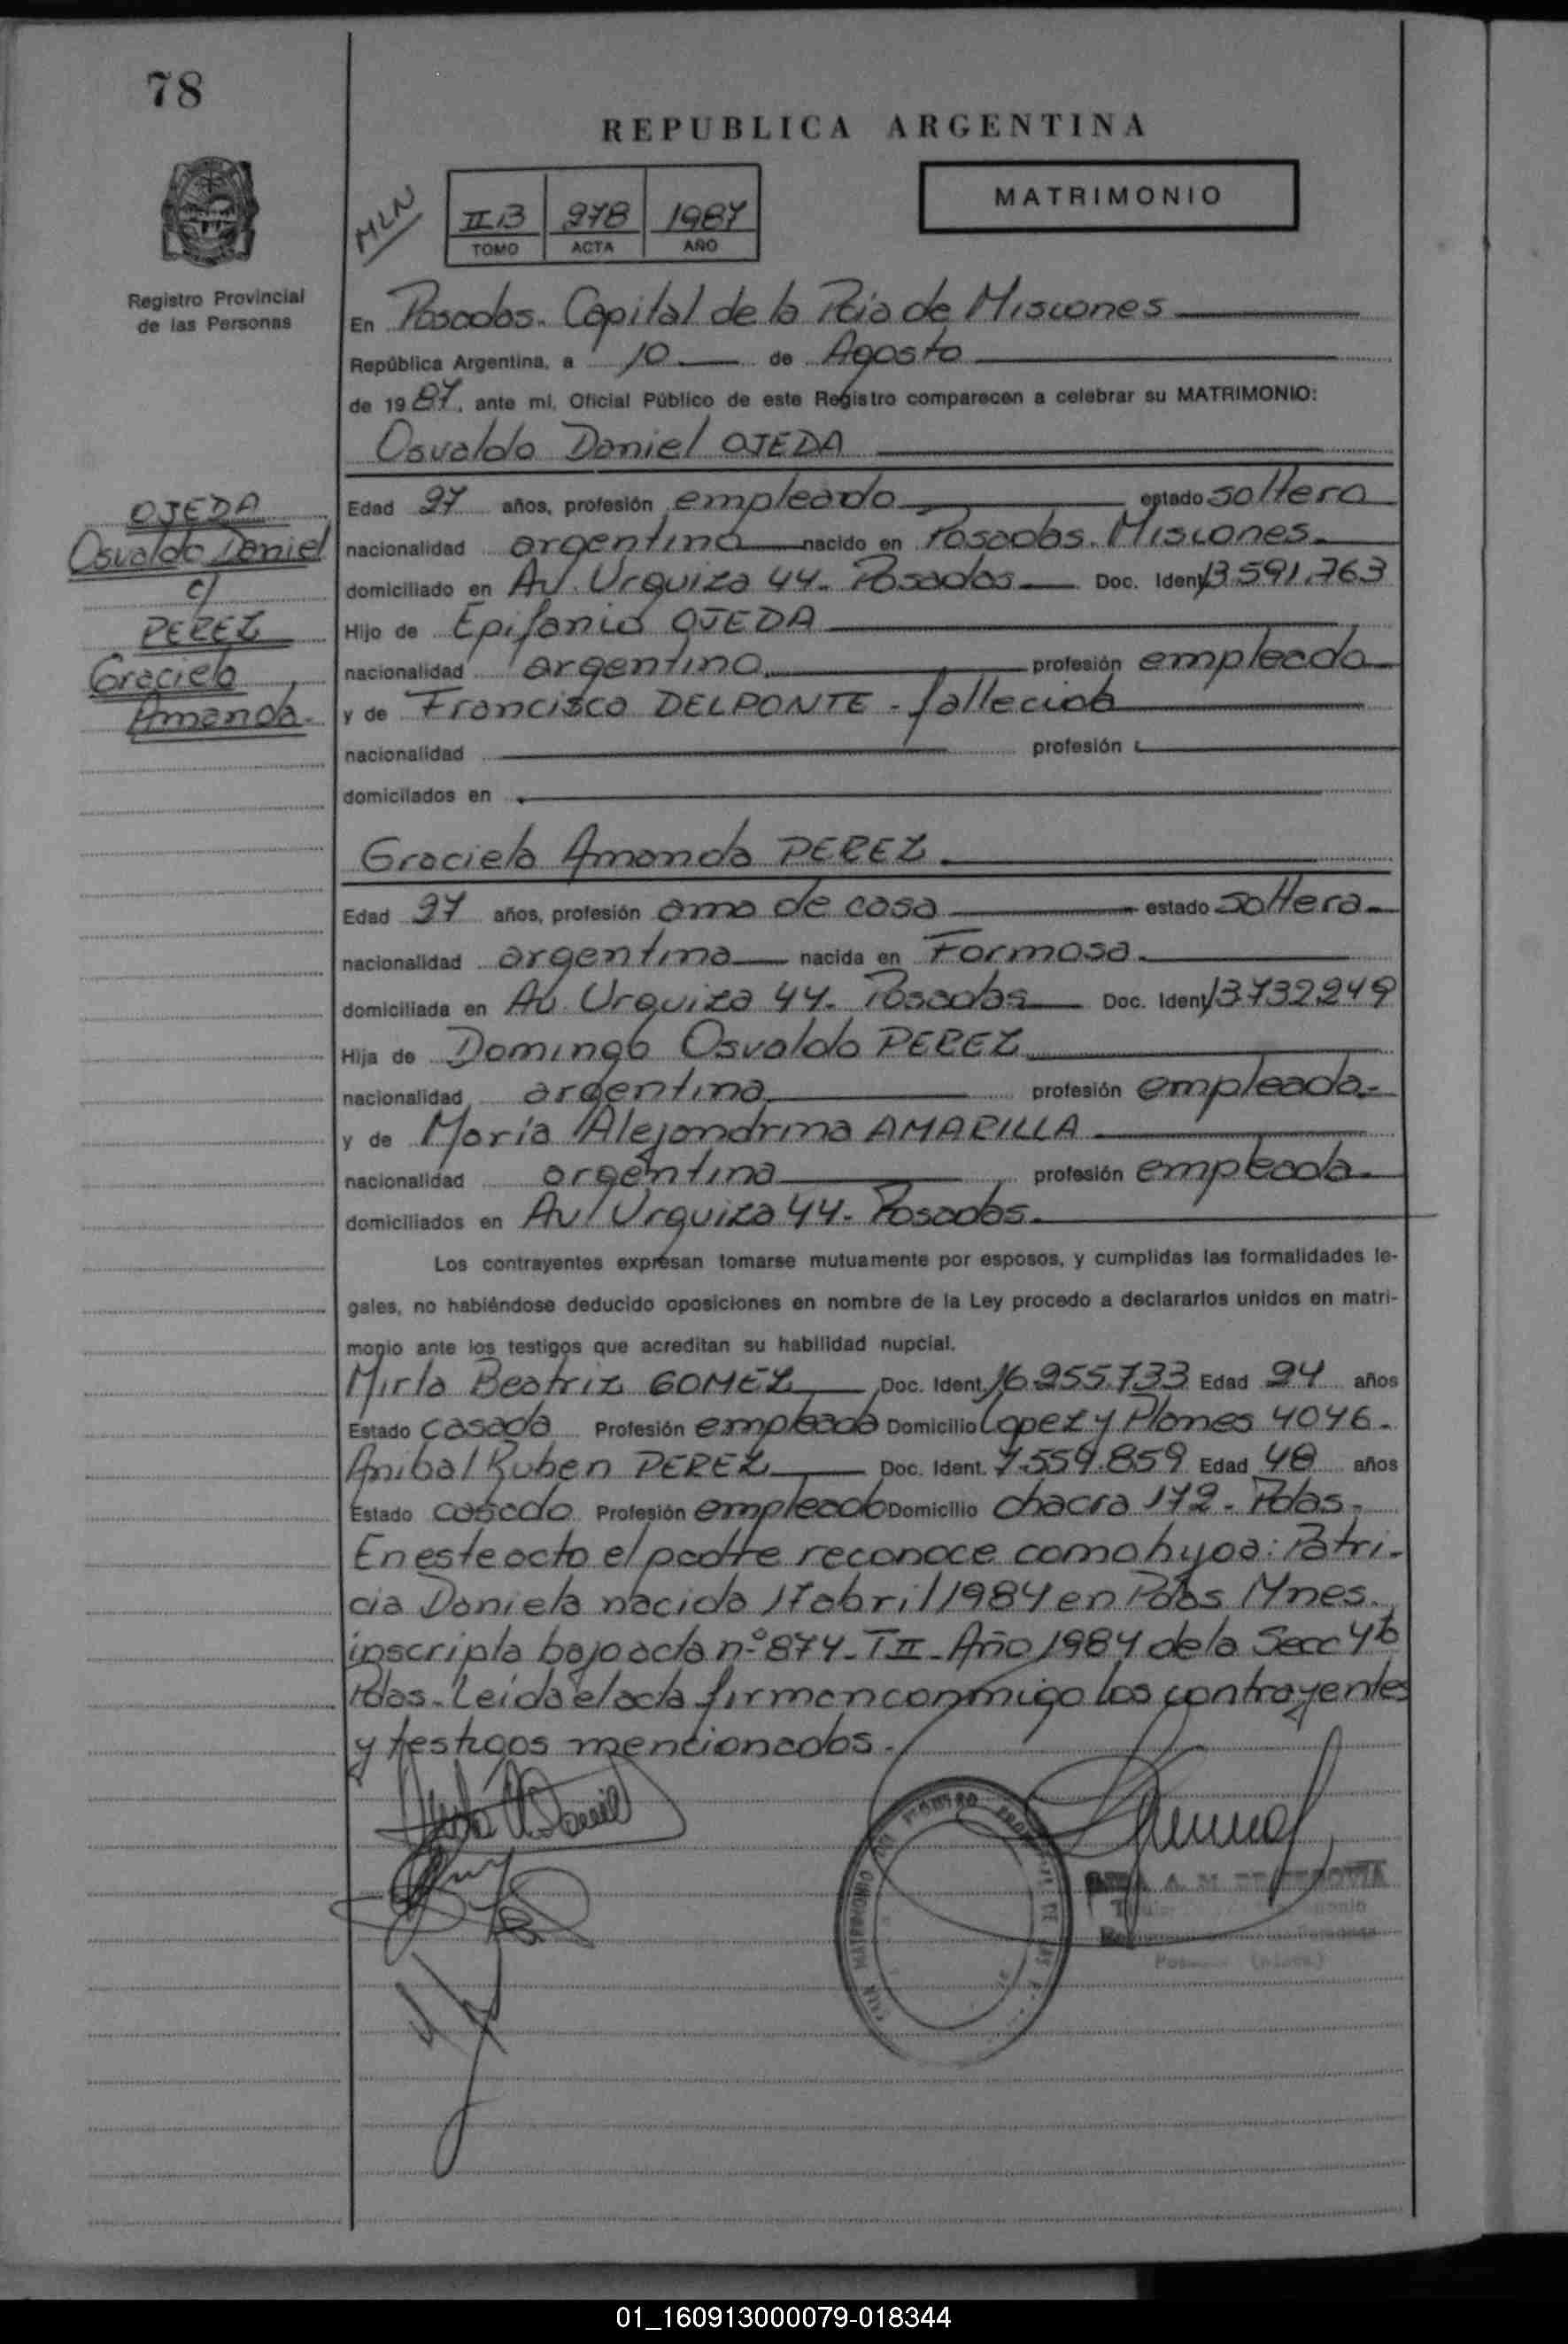 78
REPUBLICA ARGENTINA
MLN
II B 278 1987
TOMO ACTA AÑO
MATRIMONIO
Registro Provincial
de las Personas
En Posadas. Capital de la Pcia de Misiones
República Argentina, a 10 de Agosto
de 1987, ante mi, Oficial Público de este Registro comparecen a celebrar su MATRIMONIO:
Osvaldo Daniel OJEDA
OJEDA
Osvaldo Daniel
c/
PEREZ
Graciela
Amanda.
Edad 27 años, profesión empleado estado soltero
nacionalidad argentina nacido en Posadas. Misiones.
domiciliado en Av. Urquiza 44. Posadas Doc. Ident 13.591.763
Hijo de Epifanio OJEDA
nacionalidad argentina profesión empleado
y de Francisca DELPONTE - fallecida
nacionalidad profesión
domicilados en
Graciela Amanda PEREZ
Edad 27 años, profesión ama de casa estado soltera
nacionalidad argentina nacida en Formosa
domiciliada en Av. Urquiza 44. Posadas Doc. Ident 13.732.249
Hija de Domingo Osvaldo PEREZ
nacionalidad argentina profesión empleada
y de María Alejandrina AMARILLA
nacionalidad argentina profesión empleada
domiciliados en Av. Urquiza 44. Posadas.
Los contrayentes expresan tomarse mutuamente por esposos, y cumplidas las formalidades le-
gales, no habiéndose deducido oposiciones en nombre de la Ley procedo a declararlos unidos en matri-
monio ante los testigos que acreditan su habilidad nupcial.
Mirla Beatriz GOMEZ Doc. Ident. 16.255.733 Edad 24 años
Estado casada Profesión empleada Domicilio Lopez y Planes 4046.
Anibal Ruben PEREZ Doc. Ident. 7.559.859 Edad 48 años
Estado casado Profesión empleado Domicilio chacra 172. Pdas.
En este acto el padre reconoce como hija a: Patri-
cia Daniela nacida 17 abril 1984 en Pdas Mnes.
inscripta bajo acta nº 874. T II. Año 1984 de la Secc 4ta
Pdas. Leída el acta firman conmigo los contrayentes
y testigos mencionados.
01_160913000079-018344